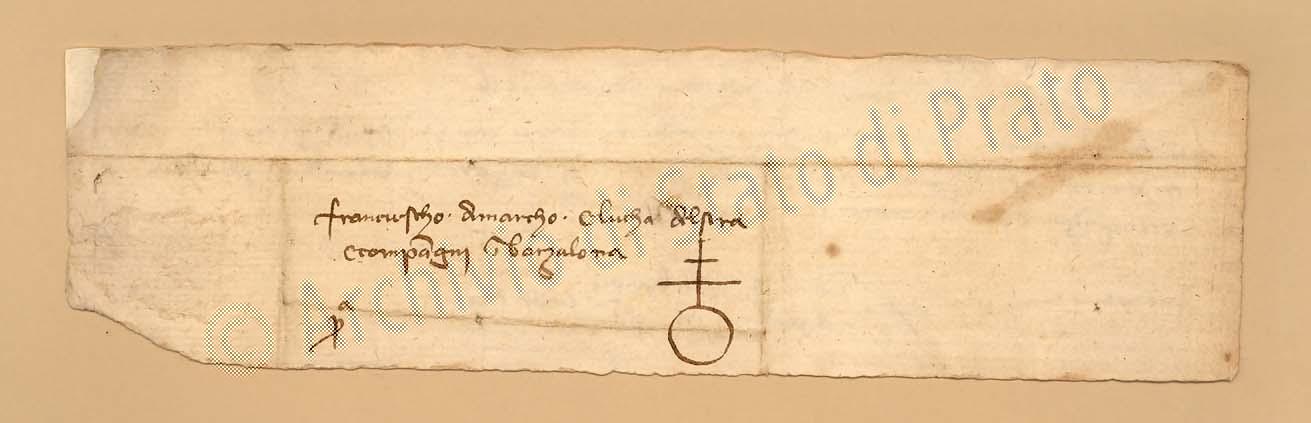 francescho. damarcho. e lucha del sera
e compa͞gni i͞ barzalona
pª
© Archivio di Stato di Prato